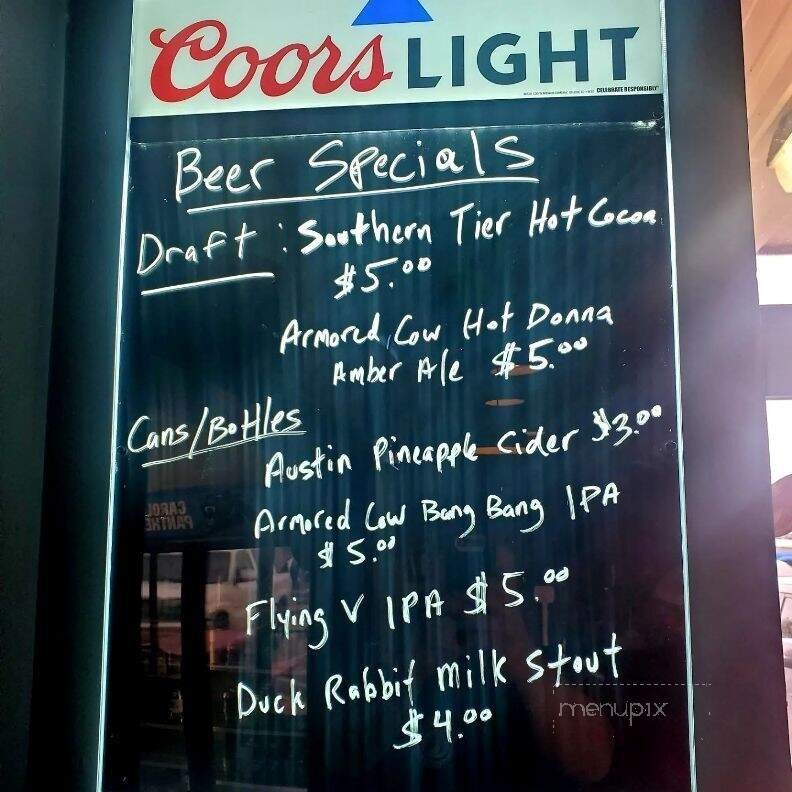 Coors LIGHT
CELEBRATE RESPONSIBLY
Beer Specials
Draft : Southern Tier Hot Cocoa
$5.00
Armored Cow Hot Donna
Amber Ale $5.00
Cans/Bottles
Austin Pineapple Cider $3.00
Armored Cow Bang Bang IPA
$5.00
Flying V IPA $5.00
Duck Rabbit Milk Stout
$4.00
menupix